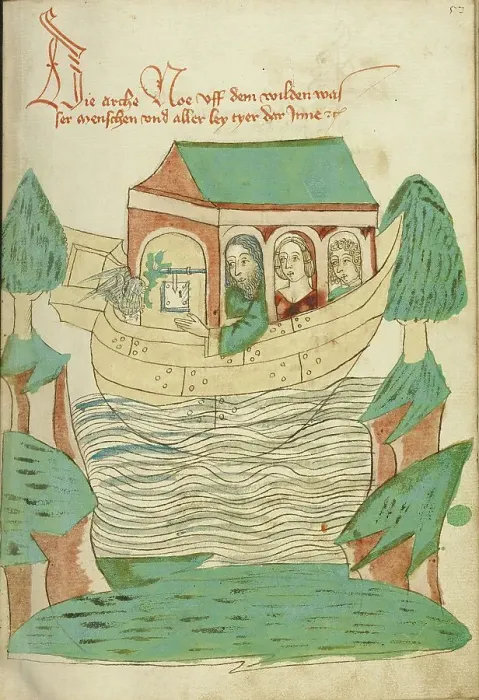 53
Die arche Noe vff dem wilden was
ser menschen vnd aller ley tyer dar Inne ꝛc